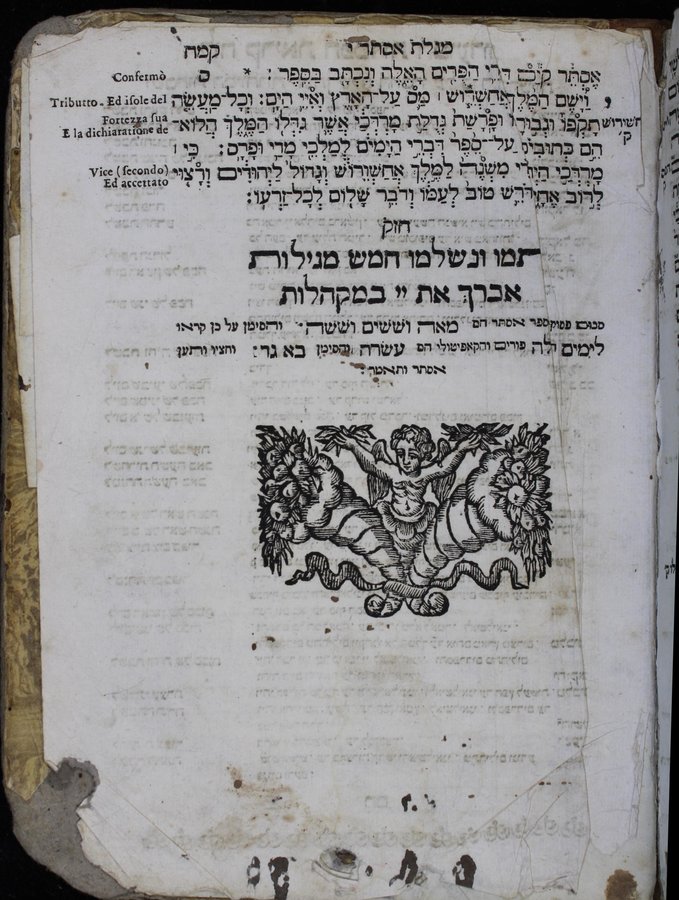 מגלת אסתר י קמח
אֶסְתֵּר קִיַּם דִּבְרֵי הַפֻּרִים הָאֵלֶּה וְנִכְתָּב בַּסֵּפֶר : * ס
Confermò
, וַיָּשֶׂם הַמֶּלֶךְ אֲחַשְׁרֹושׁ ׀ מַס עַל־הָאָרֶץ וְאִיֵּי הַיָּם : וְכָל־מַעֲשֵׂה
Tributto - Ed isole del
תָקְפּוֹ וּגְבוּרָתוֹ וּפָרָשַׁת גְּדֻלַּת מָרְדֳּכַי אֲשֶׁר גִּדְּלוֹ הַמֶּלֶךְ הֲלוֹא־
חשורוש
ק'
Fortezza sua
E la dichiaratione de
הֵם כְּתוּבִים עַל־סֵפֶר דִּבְרֵי הַיָּמִים לְמַלְכֵי מָדַי וּפָרָס : כִּי ׀
מָרְדֳּכַי הַיְּהוּדִי מִשְׁנֶה לַמֶּלֶךְ אֲחַשְׁוֵרוֹשׁ וְגָדוֹל לַיְּהוּדִים וְרָצוּי
Vice (secondo)
Ed accettato
לְרוֹב אֶחָיו דֹּרֵשׁ טוֹב לְעַמּוֹ וְדֹבֵר שָׁלוֹם לְכָל־זַרְעוֹ :
חזק
תמו ונשלמו חמש מגילות
אברך את יי במקהלות
סכום פסוקי ספר אסתר הם מאה וששים וששה . והסימן על כן קראו
לימים האלה פורים והקאפיטולי הם עשרה והסימן בא גד : וחציו ותען
אסתר ותאמר :